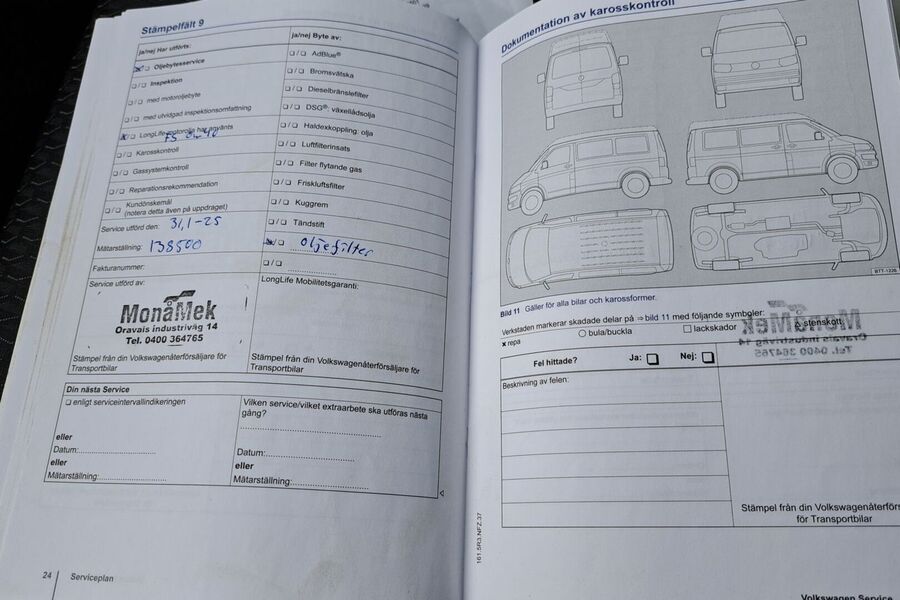 Stämpelfält 9
ja/nej Har utförts:
☒/❏ Oljebytesservice
❏/❏ Inspektion
❏/❏ med motoroljebyte
❏/❏ med utvidgad inspektionsomfattning
☒/❏ LongLife-motorolja har använts
FS 0w40
❏/❏ Karosskontroll
❏/❏ Gassystemkontroll
❏/❏ Reparationsrekommendation
❏/❏ Kundönskemål
(notera detta även på uppdraget)
Service utförd den: 31,1-25
Mätarställning: 138500
Fakturanummer:
Service utförd av:
MonåMek
Oravais industriväg 14
Tel. 0400 364765
Stämpel från din Volkswagenåterförsäljare för
Transportbilar
ja/nej Byte av:
❏/❏ AdBlue®
❏/❏ Bromsvätska
❏/❏ Dieselbränslefilter
❏/❏ DSG®: växellådsolja
❏/❏ Haldexkoppling: olja
❏/❏ Luftfilterinsats
❏/❏ Filter flytande gas
❏/❏ Friskluftsfilter
❏/❏ Kuggrem
❏/❏ Tändstift
☒/❏ oljefilter
❏/❏ ........................
LongLife Mobilitetsgaranti:
Stämpel från din Volkswagenåterförsäljare för
Transportbilar
Din nästa Service
❏ enligt serviceintervallindikeringen
eller
Datum:...........................
eller
Mätarställning:...........................
Vilken service/vilket extraarbete ska utföras nästa
gång?
..................................................
Datum:...........................
eller
Mätarställning:...........................
24 Serviceplan
Dokumentation av karosskontroll
BTT-1226
Bild 11 Gäller för alla bilar och karossformer.
Verkstaden markerar skadade delar på ⇒ bild 11 med följande symboler:
x repa ○ bula/buckla □ lackskador △ stenskott
MonåMek
Oravais industriväg 14
Tel. 0400 364765
Fel hittade? Ja: ❏ Nej: ❏
Beskrivning av felen:
Stämpel från din Volkswagenåterförsäljare
för Transportbilar
161.5R3.NFZ.37
Volkswagen Service